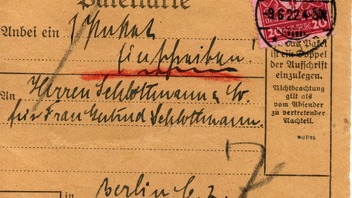 Paketkarte
Anbei ein 1 Paket
Einschreiben
An Herren Schlottmann & Co.
für Frau Gertrud Schlottmann.
Berlin C. 2.
9.6.22.4-5
20 20
das Paket
in ein Doppel
der Aufschrift
einzulegen.
Nichtbeachtung
gilt als
vom Absender
zu vertretender
Nachteil.